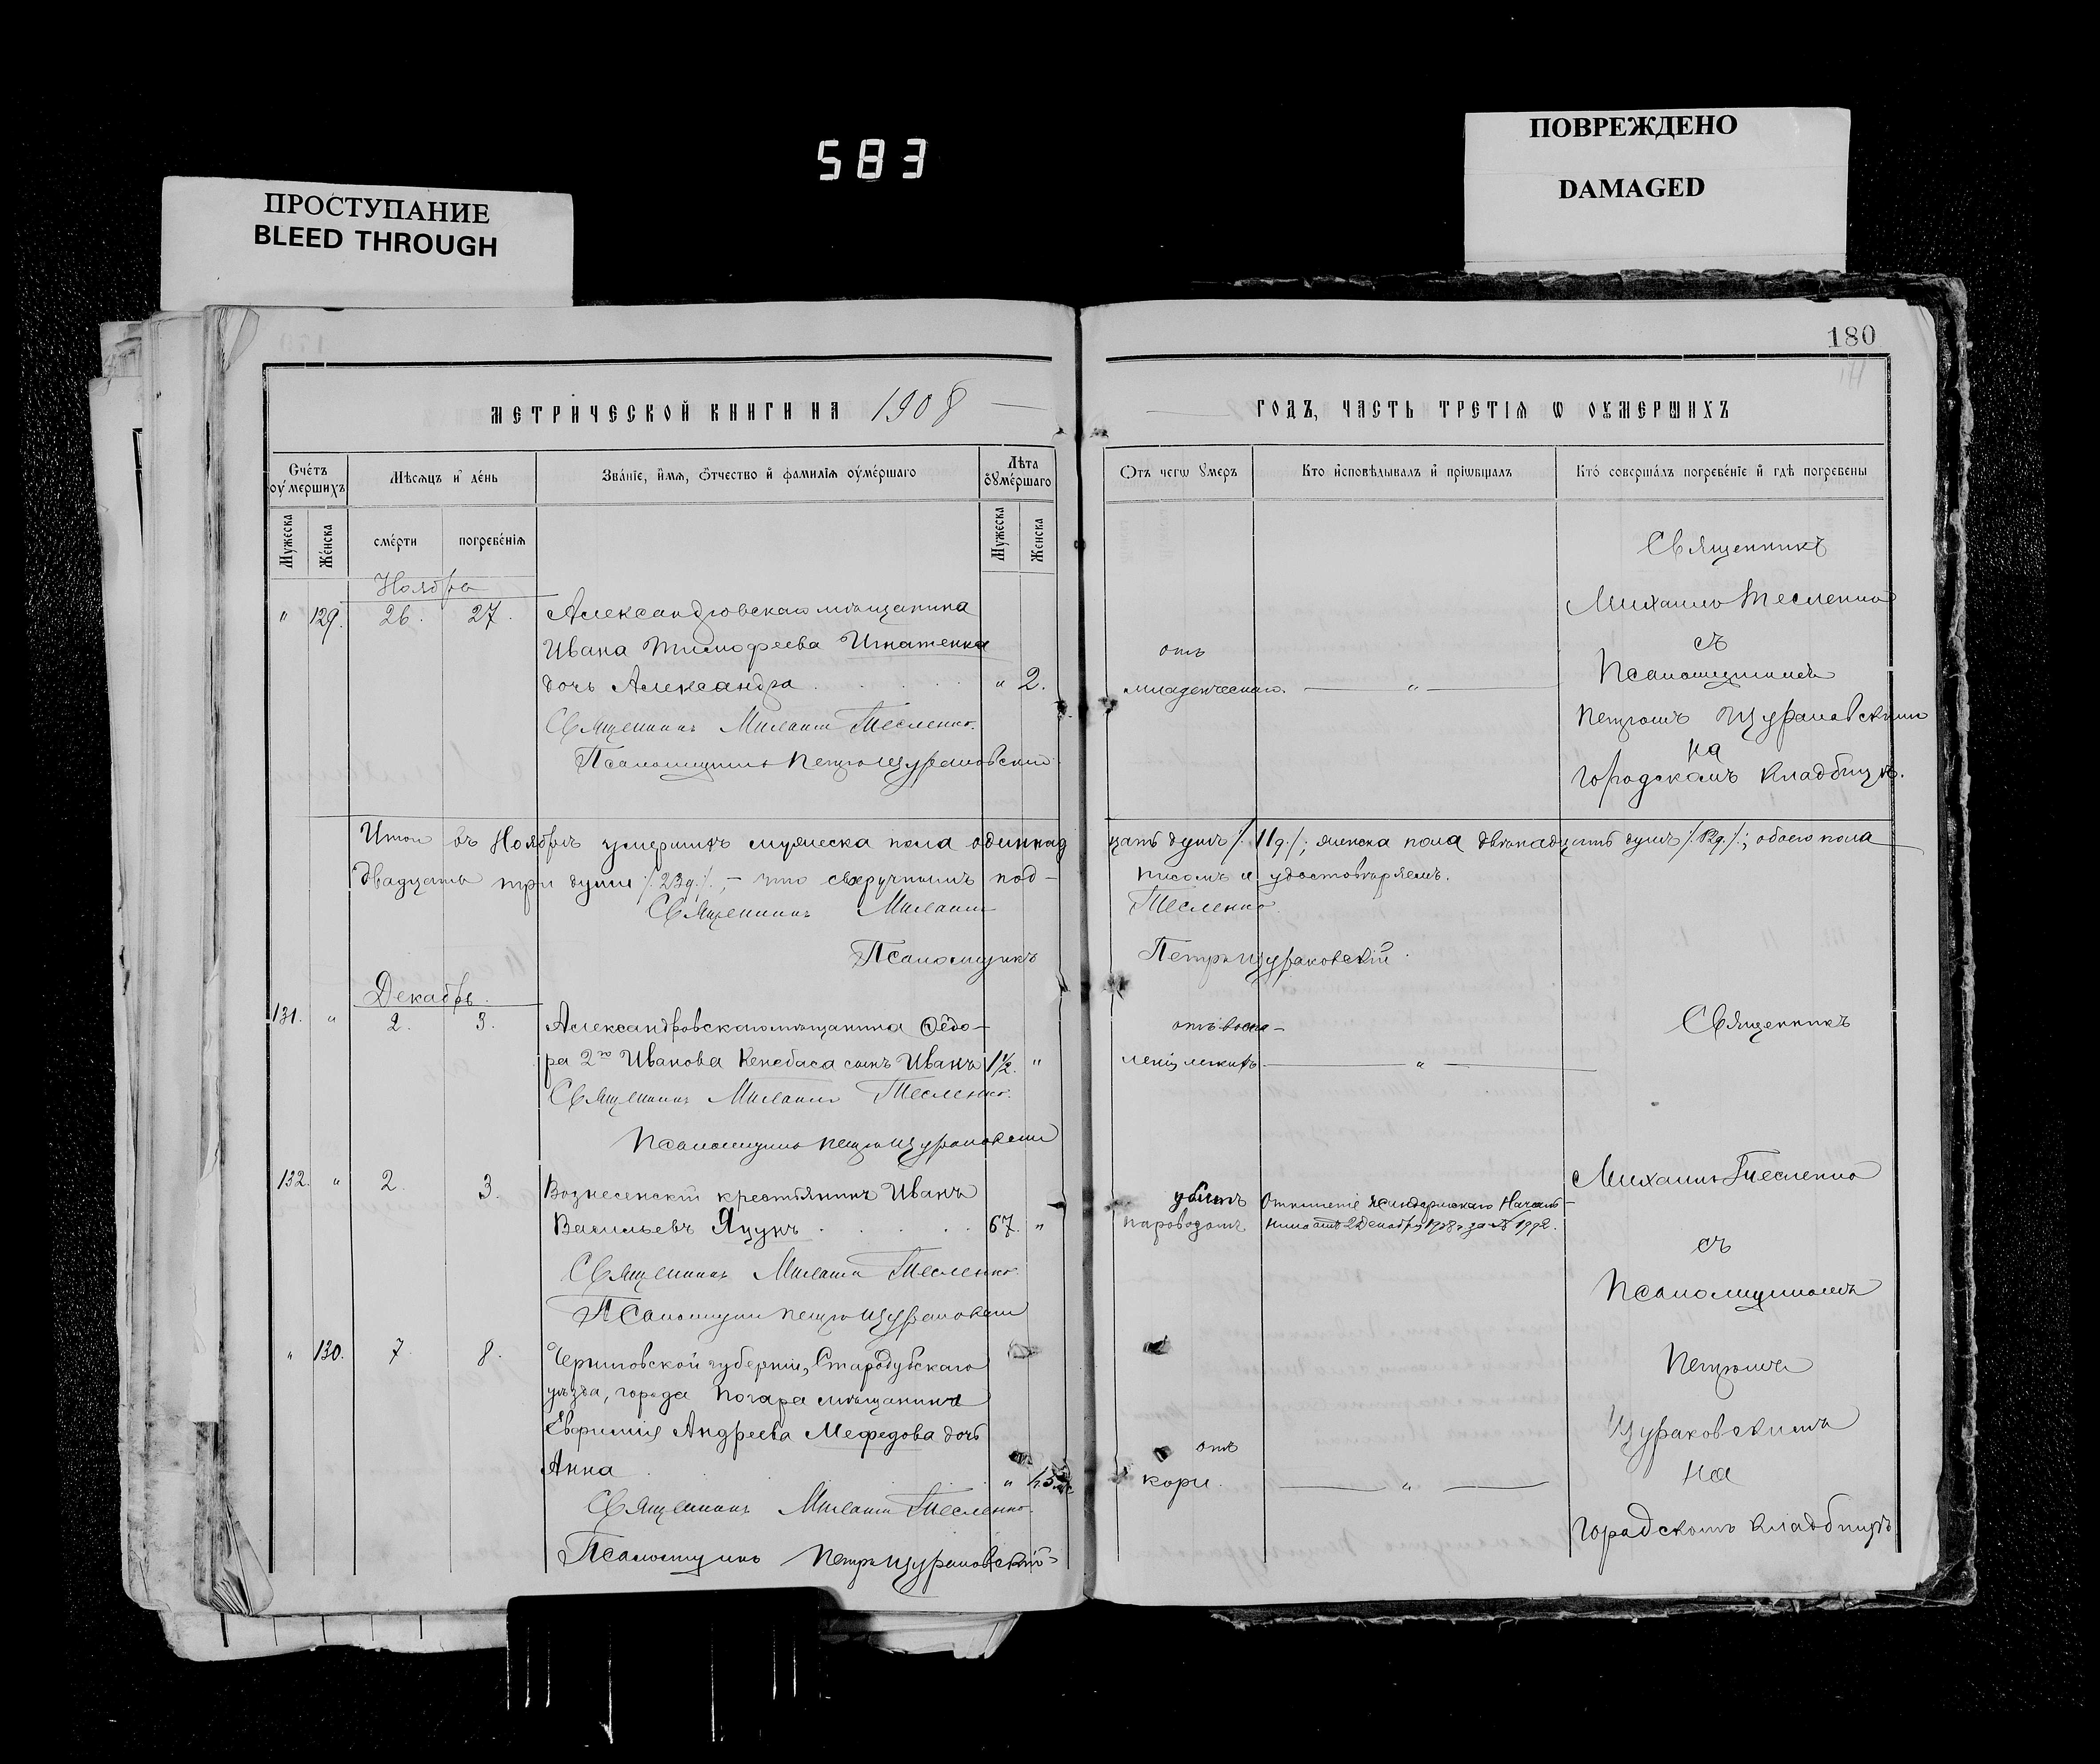 583
ПРОСТУПАНИЕ
BLEED THROUGH
ПОВРЕЖДЕНО
DAMAGED
180
МЕТРИЧЕСКОЙ КНИГИ НА 1908
ГОДЪ, ЧАСТЬ ТРЕТІѦ Ѡ ОУМЕРШИХЪ
Счéтъ оу́мершихъ
Мѣсяцъ и де́нь
Зва́нiе, и́мя, ѻ́тчество и́ фами́лiя оуме́ршаго
Лѣта оу́ме́ршаго
Отъ чегѡ оумеръ
Кто и́сповѣдывалъ и́ прiѡбщалъ
Кто́ соверша́лъ погребе́нiе и́ гдѣ погребены
Мужеска
Же́нска
сме́рти
погребе́нiя
Мужеска
Женска
Ноябрь
" 129. 26. 27. Александровскаго мѣщанина
Ивана Тимофеева Игнатенка
дочь Александра " 2.
Священникъ Михаилъ Тесленко.
Псаломщикъ Петръ Щураковскій
отъ
младенческаго. "
Священникъ
Михаилъ Тесленко
съ
Псаломщикомъ
Петромъ Щураковскимъ
на
городскомъ кладбищѣ.
Итого въ Ноябрѣ умершихъ мужеска пола одиннадцать душъ /11д./; женска пола двѣнадцать душъ /12д./; обоего пола
двадцать три души /23д./, – что своеручнымъ подписомъ и удостовѣряемъ.
Священникъ Михаилъ Тесленко.
Псаломщикъ Петръ Щураковскій.
Декабрь.
131. " 2. 3. Александровскаго мѣщанина Ѳедо-
ра 2го Иванова Кенебаса сынъ Иванъ 1½. "
Священникъ Михаилъ Тесленко.
Псаломщикъ Петръ Щураковскій
отъ воспа-
ленія легкихъ "
Священникъ
132. " 2. 3. Вознесенскій крестьянинъ Иванъ
Васильевъ Яцунъ 67. "
Священникъ Михаилъ Тесленко.
Псаломщикъ Петръ Щураковскій
убитъ
паровозомъ
Отношеніе Жандармскаго Началь-
ника отъ 2 Декабря 1908г. за № 1992.
Михаилъ Тесленко
съ
Псаломщикомъ
" 130. 7. 8. Черниговской губерніи, Стародубскаго
уѣзда, города Погара мѣщанина
Евфимія Андреева Мефедова дочь
Анна "
Священникъ Михаилъ Тесленко.
Псаломщикъ Петръ Щураковскій
отъ
кори. "
Петромъ
Щураковскимъ
на
городскомъ кладбищѣ